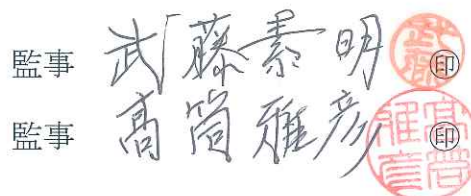 監事 武藤素明 ㊞
監事 高筒雅彦 ㊞